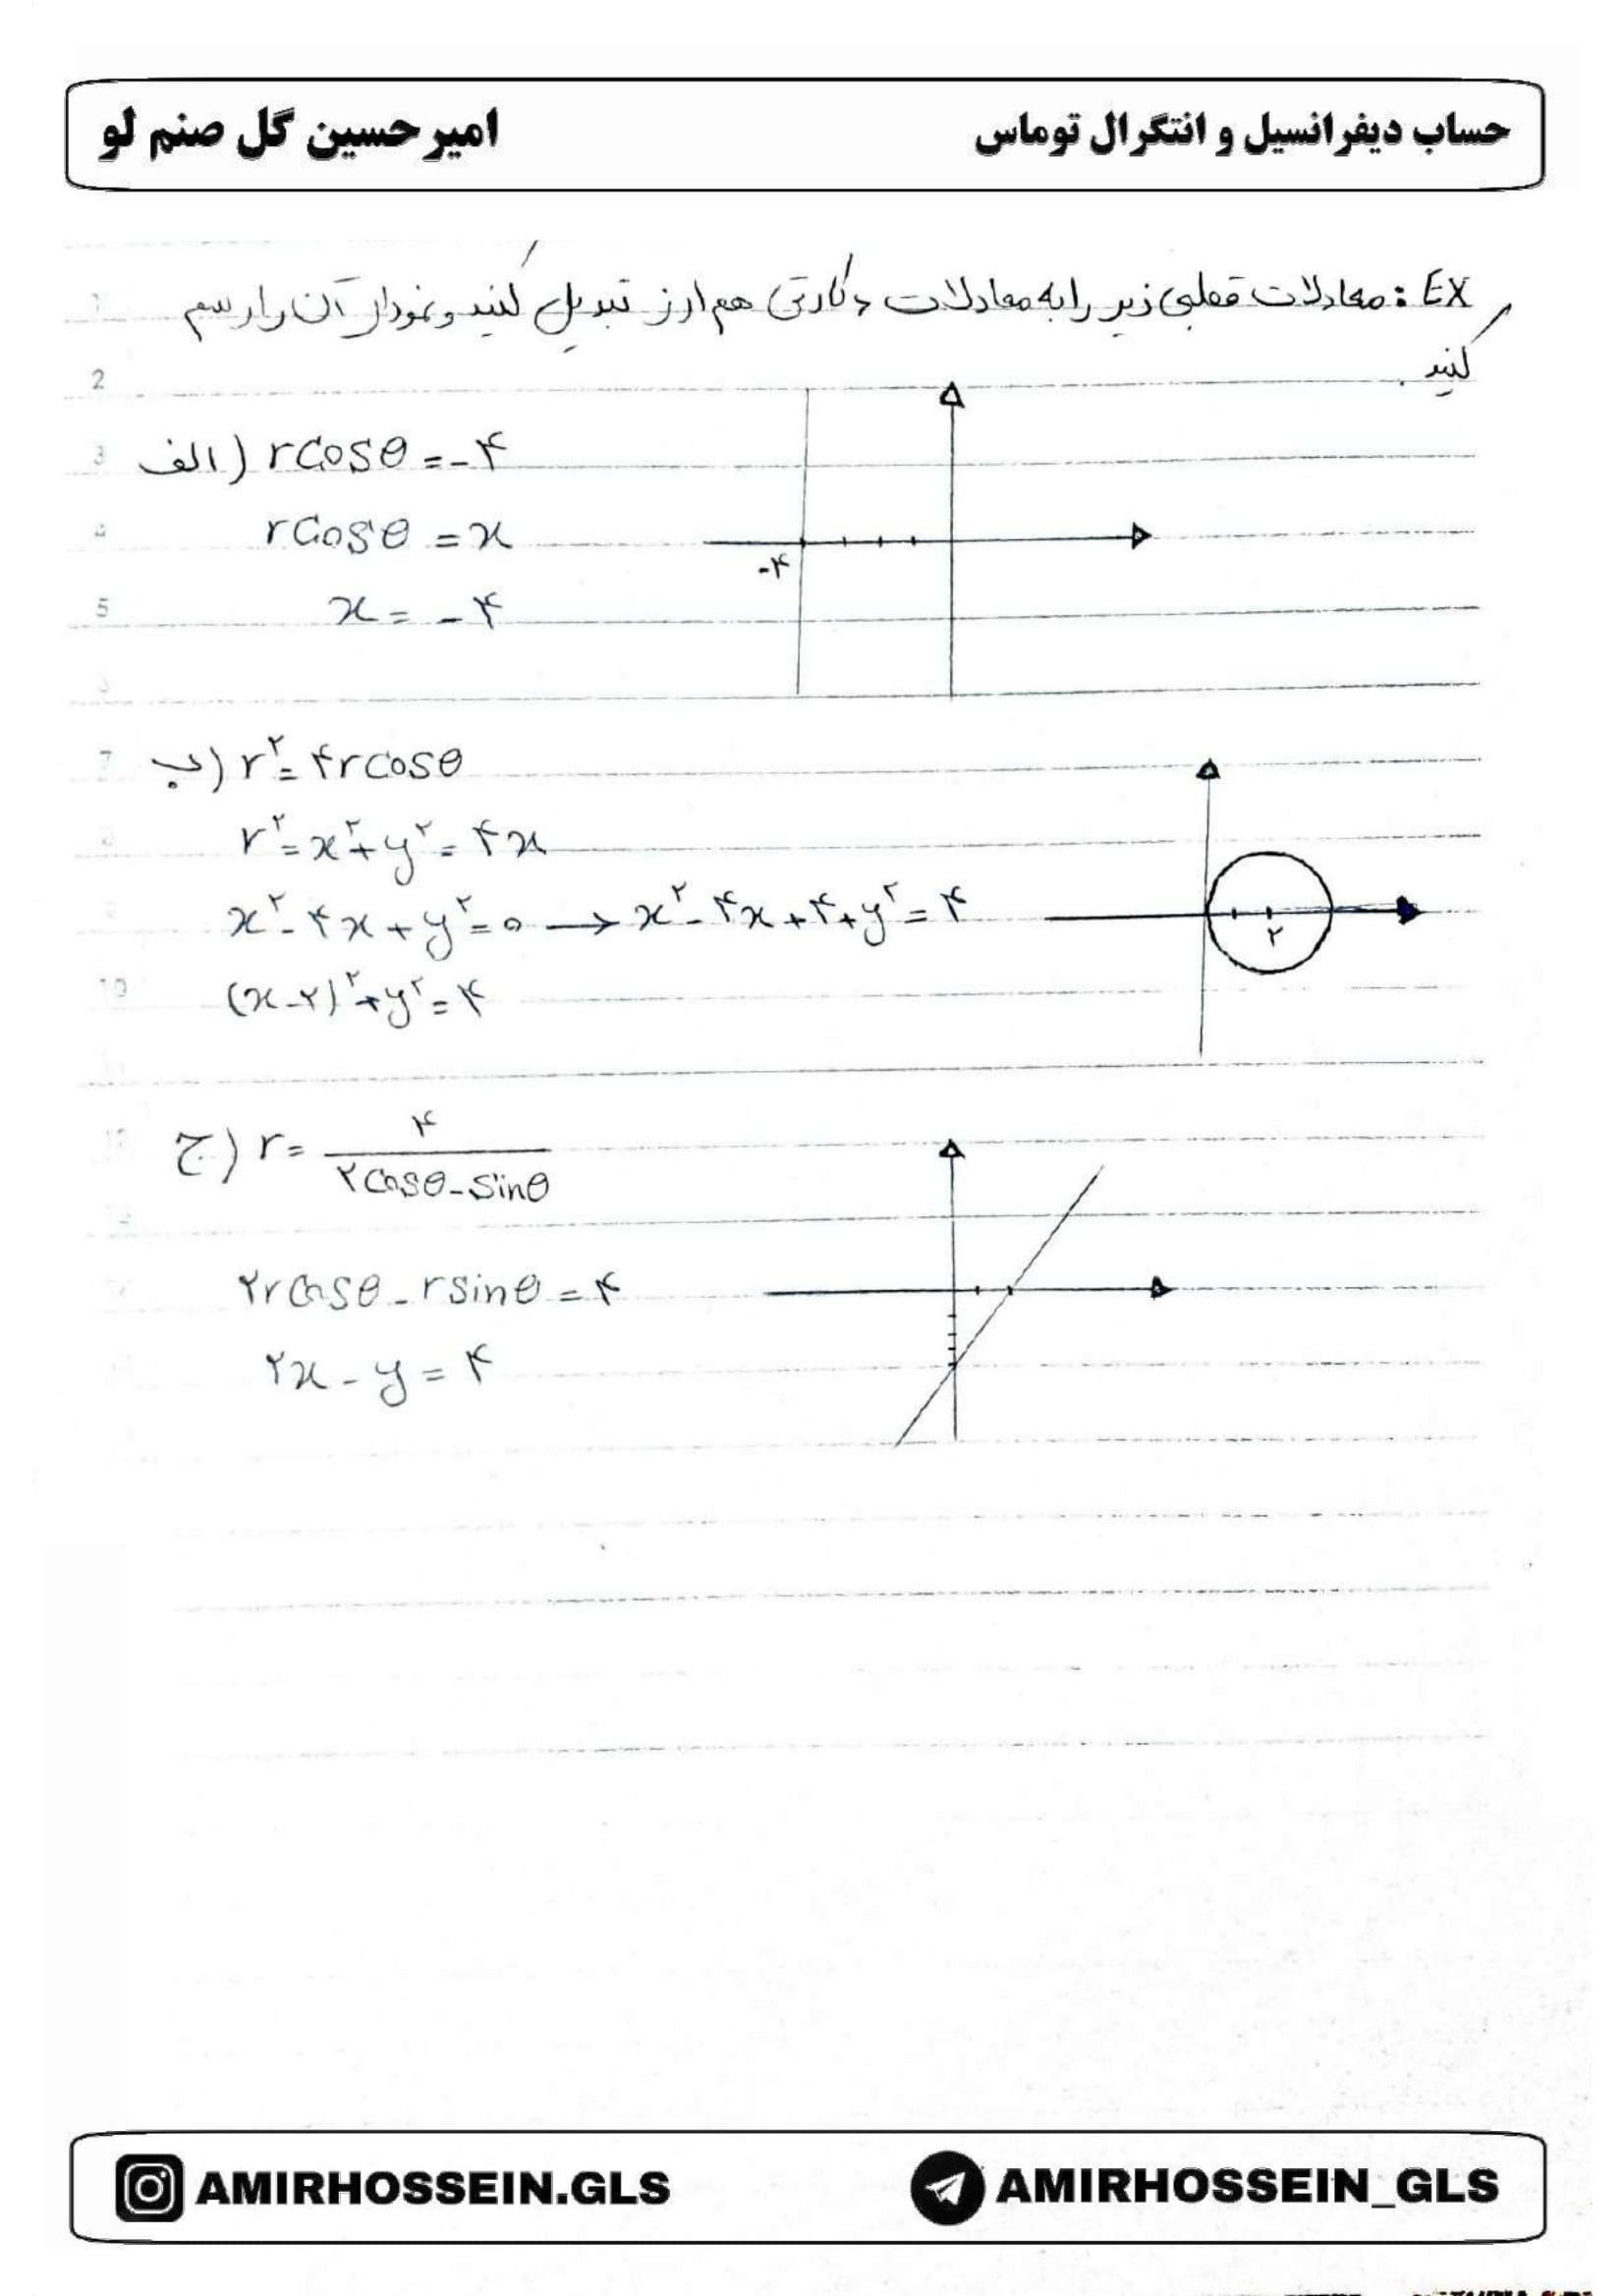 حساب دیفرانسیل و انتگرال توماس
امیرحسین گل صنم لو
EX: معادلات قطبی زیر را به معادلات دکارتی هم ارز تبدیل کنید و نمودار آن را رسم
کنید.
1
2
3
الف) rCosθ = -۴
4
rCosθ = x
-۴
5
x = -۴
6
7
ب) r² = ۴rcosθ
8
r² = x² + y² = ۴x
9
x² - ۴x + y² = ۰ → x² - ۴x + ۴ + y² = ۴
۲
10
(x-۲)² + y² = ۴
ج) r = ۴ / (۲cosθ - sinθ)
۲rcosθ - rsinθ = ۴
۲x - y = ۴
AMIRHOSSEIN.GLS
AMIRHOSSEIN_GLS